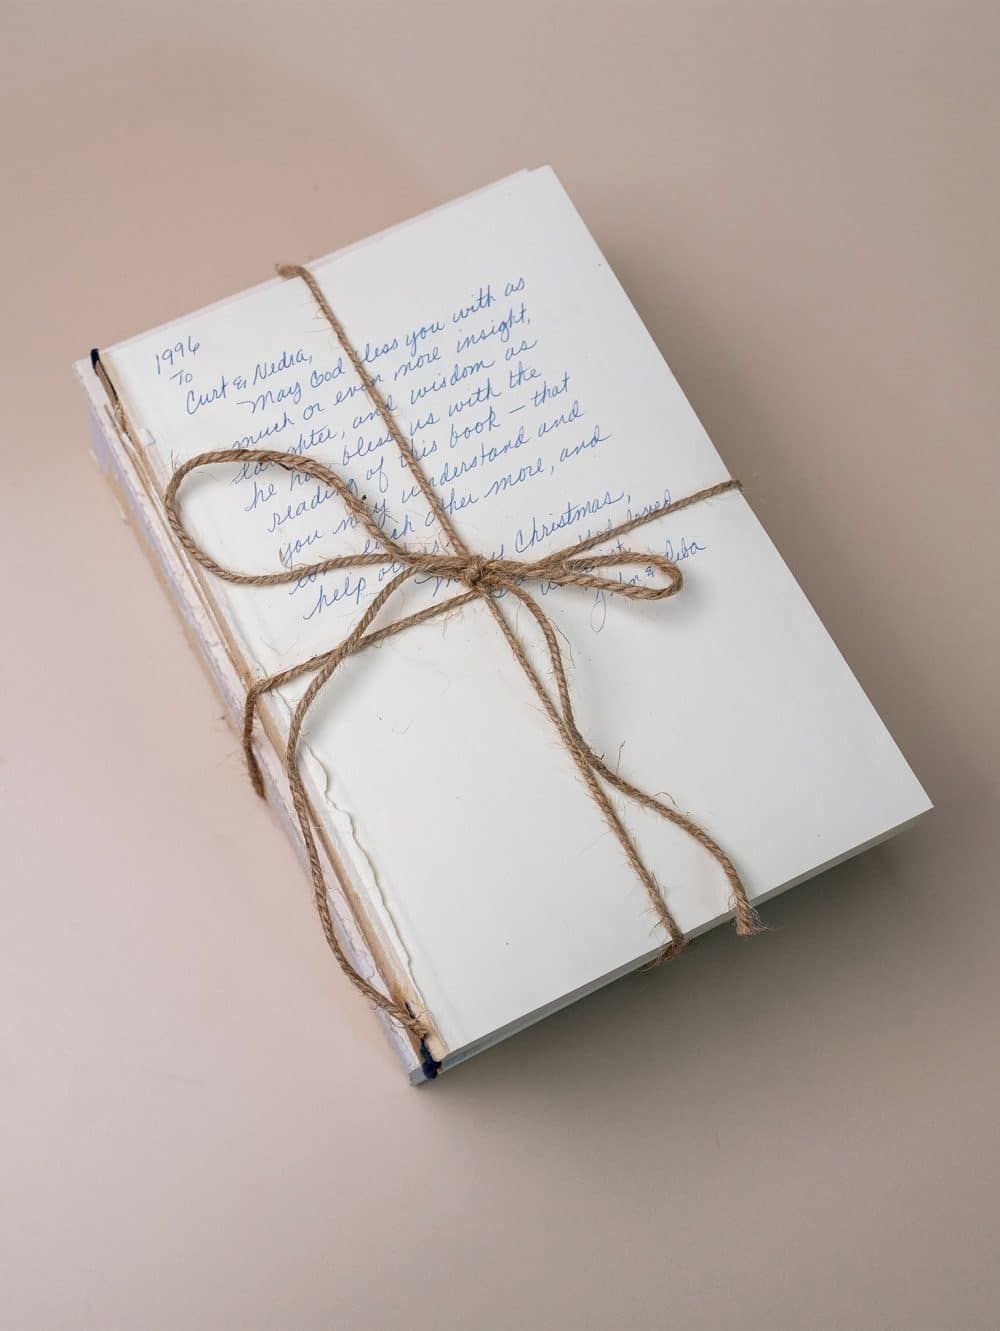 1996
To
Curt & Nedra,
May God bless you with as
much or even more insight,
laughter, and wisdom as
he has bless us with the
reading of this book — that
you may understand and
each other more, and
help Christmas,
loved
John &